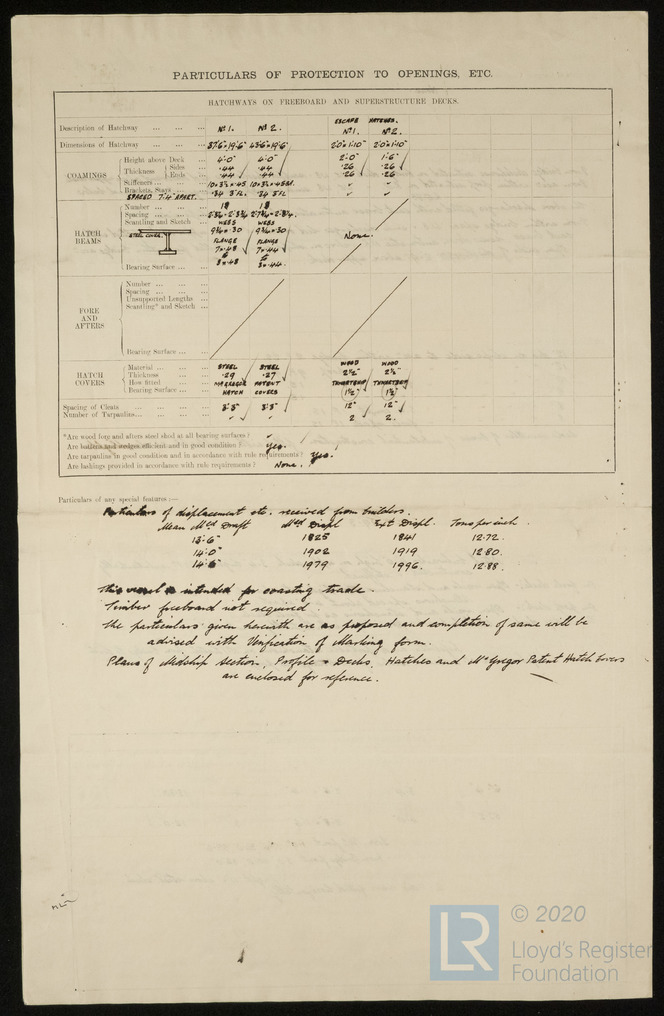 PARTICULARS OF PROTECTION TO OPENINGS, ETC.
HATCHWAYS ON FREEBOARD AND SUPERSTRUCTURE DECKS.
ESCAPE HATCHES.
Description of Hatchway ... ... ... Nº1. Nº2. Nº1. Nº2.
Dimensions of Hatchway ... ... 37'6"×19'6" 43'6"×19'6" 2'0"×1'10" 2'0"×1'10"
COAMINGS
Height above Deck ... 4'0" 4'0" 2'0" 1'6"
Thickness Sides ... .44 .44 .26 .26
Ends ... .44 .44 .26 .26
Stiffeners ... ... ...
Brackets, Stays ... ... .34
SPACED 7'4" APART.
HATCH BEAMS
Number ... ... ... 18 18
Spacing ... ... ...
Scantling and Sketch ... WEBS WEBS
STEEL COVER. 9¾×.30 9¾×.30
FLANGE FLANGE None.
7×.48 7×.44
&
3×.48 3×.44.
Bearing Surface ... ...
FORE AND AFTERS
Number ... ... ...
Spacing ... ... ...
Unsupported Lengths ...
Scantling* and Sketch ...
Bearing Surface ... ...
HATCH COVERS
Material ... ... ... STEEL STEEL WOOD WOOD
Thickness ... ... .29 .27 2½" 2½"
How fitted ... ... MACGREGOR PATENT
Bearing Surface ... ... HATCH COVERS 1½" 1½"
Spacing of Cleats ... ... ... 3'3" 3'3" 12" 12"
Number of Tarpaulins... ... ... 2 2.
*Are wood fore and afters steel shod at all bearing surfaces?
Are battens and wedges efficient and in good condition? Yes.
Are tarpaulins in good condition and in accordance with rule requirements? Yes.
Are lashings provided in accordance with rule requirements? None.
Particulars of any special features :—
Particulars of displacement etc. received from builders.
Mean Mld Draft Mld Displ Ext Displ. Tons per inch.
13'6" 1825 1841 12.72.
14'0" 1902 1919 12.80.
14'6" 1979 1996. 12.88.
This vessel is intended for coasting trade.
Timber freeboard not required
The particulars given herewith are as proposed and completion of same will be
advised with Verification of Marking form.
Plans of Midship Section, Profile & Decks, Hatches and McGregor Patent Hatch Covers
are enclosed for reference.
LR
© 2020
Lloyd's Register
Foundation